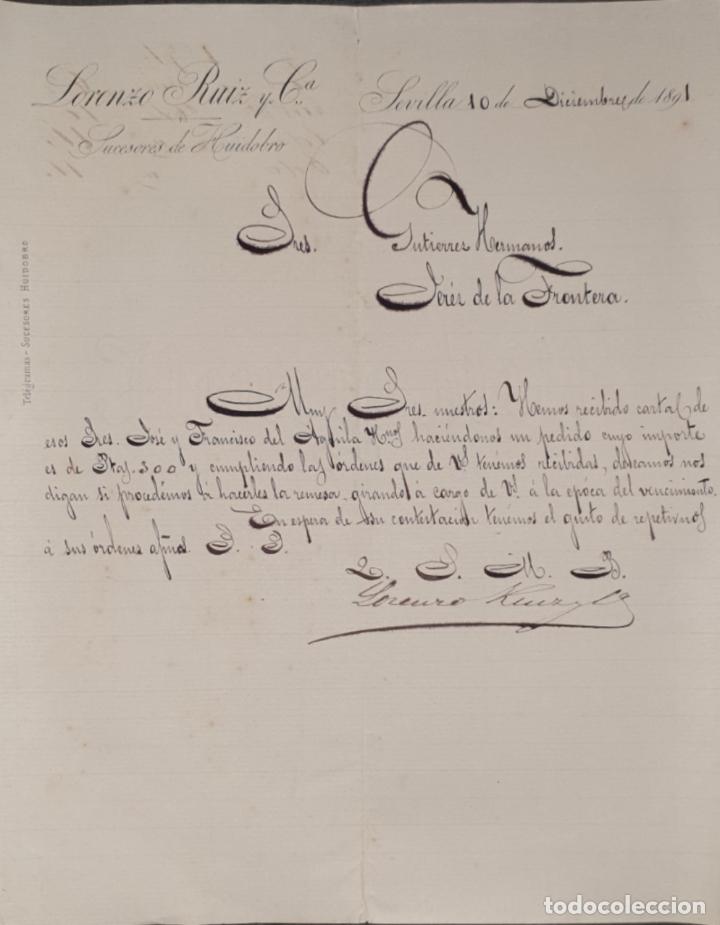 Lorenzo Ruiz y Cª
Sevilla 10 de Diciembre de 1891
Sucesores de Huidobro
Telégramas - SUCESORES HUIDOBRO
Sres. Gutierrez Hermanos.
Jeréz de la Frontera.
Muy Sres. nuestros: Hemos recibido carta de
esos Sres. José y Francisco del Aguila Hnos haciéndonos un pedido cuyo importe
es de Ptas. 300 y cumpliendo las órdenes que de Vs. tenémos recibidas, deseamos nos
digan si procedémos á hacerles la remesa, girando á cargo de Vs. á la epóca del vencimiento.
En espera de su contestación tenémos el gusto de repetirnos
á sus órdenes afmos. S. S.
Q. S. M. B.
Lorenzo Ruiz y Cª
todocoleccion